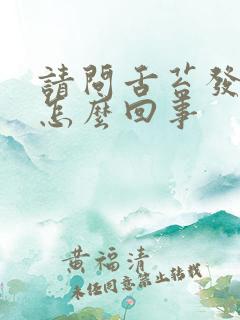 請問舌苔發
怎麼回事
黃福清
未经同意禁止转载